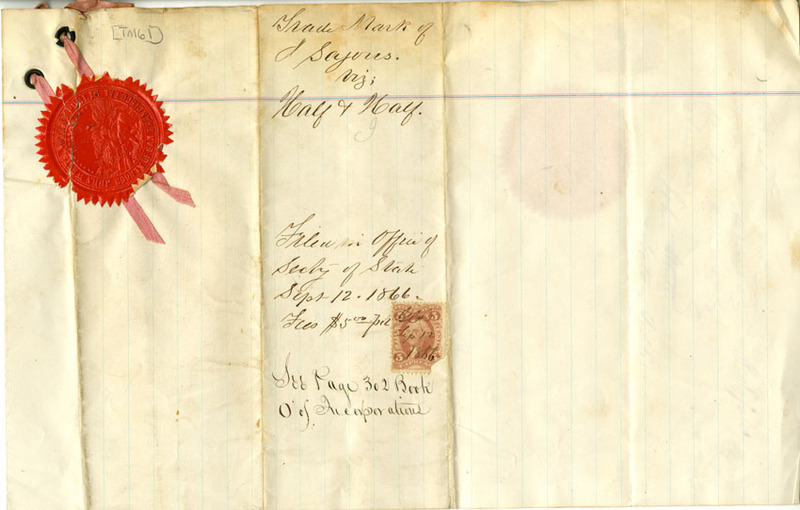 [TM61]
Trade Mark of
J Sayres.
Viz;
Half & Half.
Filed in Office of
Secty of State
Sept. 12. 1866.
Fees $5 00
Sep 12
1866
5 5
See Page 302 Book
O of Incorporations